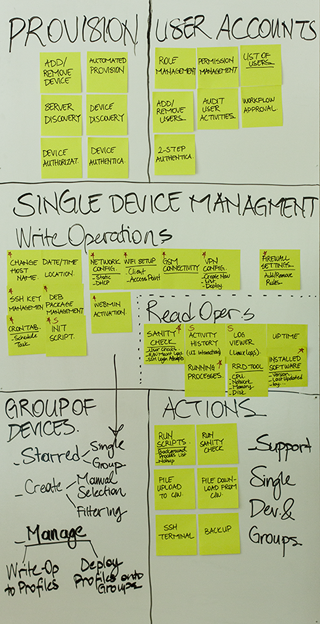 PROVISION
ADD/
REMOVE
DEVICE
AUTOMATED
PROVISION
SERVER
DISCOVERY
DEVICE
DISCOVERY
DEVICE
AUTHORIZAT.
DEVICE
AUTHENTICA
USER ACCOUNTS
ROLE
MANAGEMENT
PERMISSION
MANAGEMENT
LIST OF
USERS
ADD/
REMOVE
USERS
AUDIT
USER
ACTIVITIES
WORKFLOW
APPROVAL
2-STEP
AUTHENTICA
SINGLE DEVICE MANAGMENT
Write Operations
CHANGE
HOST
NAME
DATE/TIME
LOCATION.
NETWORK
CONFIG.
- Static
- DHCP
WIFI SETUP
- Client
- Access Point
GSM
CONNECTIVITY
VPN
CONFIG.
- Create New
- List
- Deploy
FIREWALL
SETTINGS
- Add/Remove
Rules
SSH KEY
MANAGEMEN
DEB
PACKAGE
MANAGEMENT
WEBMIN
ACTIVATION
CRONTAB.
- Schedule
Task
INIT
SCRIPT.
Read Opers.
SANITY
CHECK
ACTIVITY
HISTORY
(UI Interaction)
LOG
VIEWER
(Linux logs)
UPTIME
RUNNING
PROCESSES.
RRD TOOL
- CPU
- Network
- Memory
- Disk
INSTALLED
SOFTWARE
- Version
- Last Updated
by
GROUP OF
DEVICES.
- Starred
Single
Group
- Create
Manual
Selection
Filtering
- Manage
Write-Op
to Profiles
Deploy
Profiles onto
Groups
ACTIONS
RUN
SCRIPTS
- Background
Process List
RUN
SANITY
CHECK
FILE
UPLOAD
TO
FILE DOWN-
LOAD FROM
SSH
TERMINAL
BACKUP
Support
Single
Dev. &
Groups